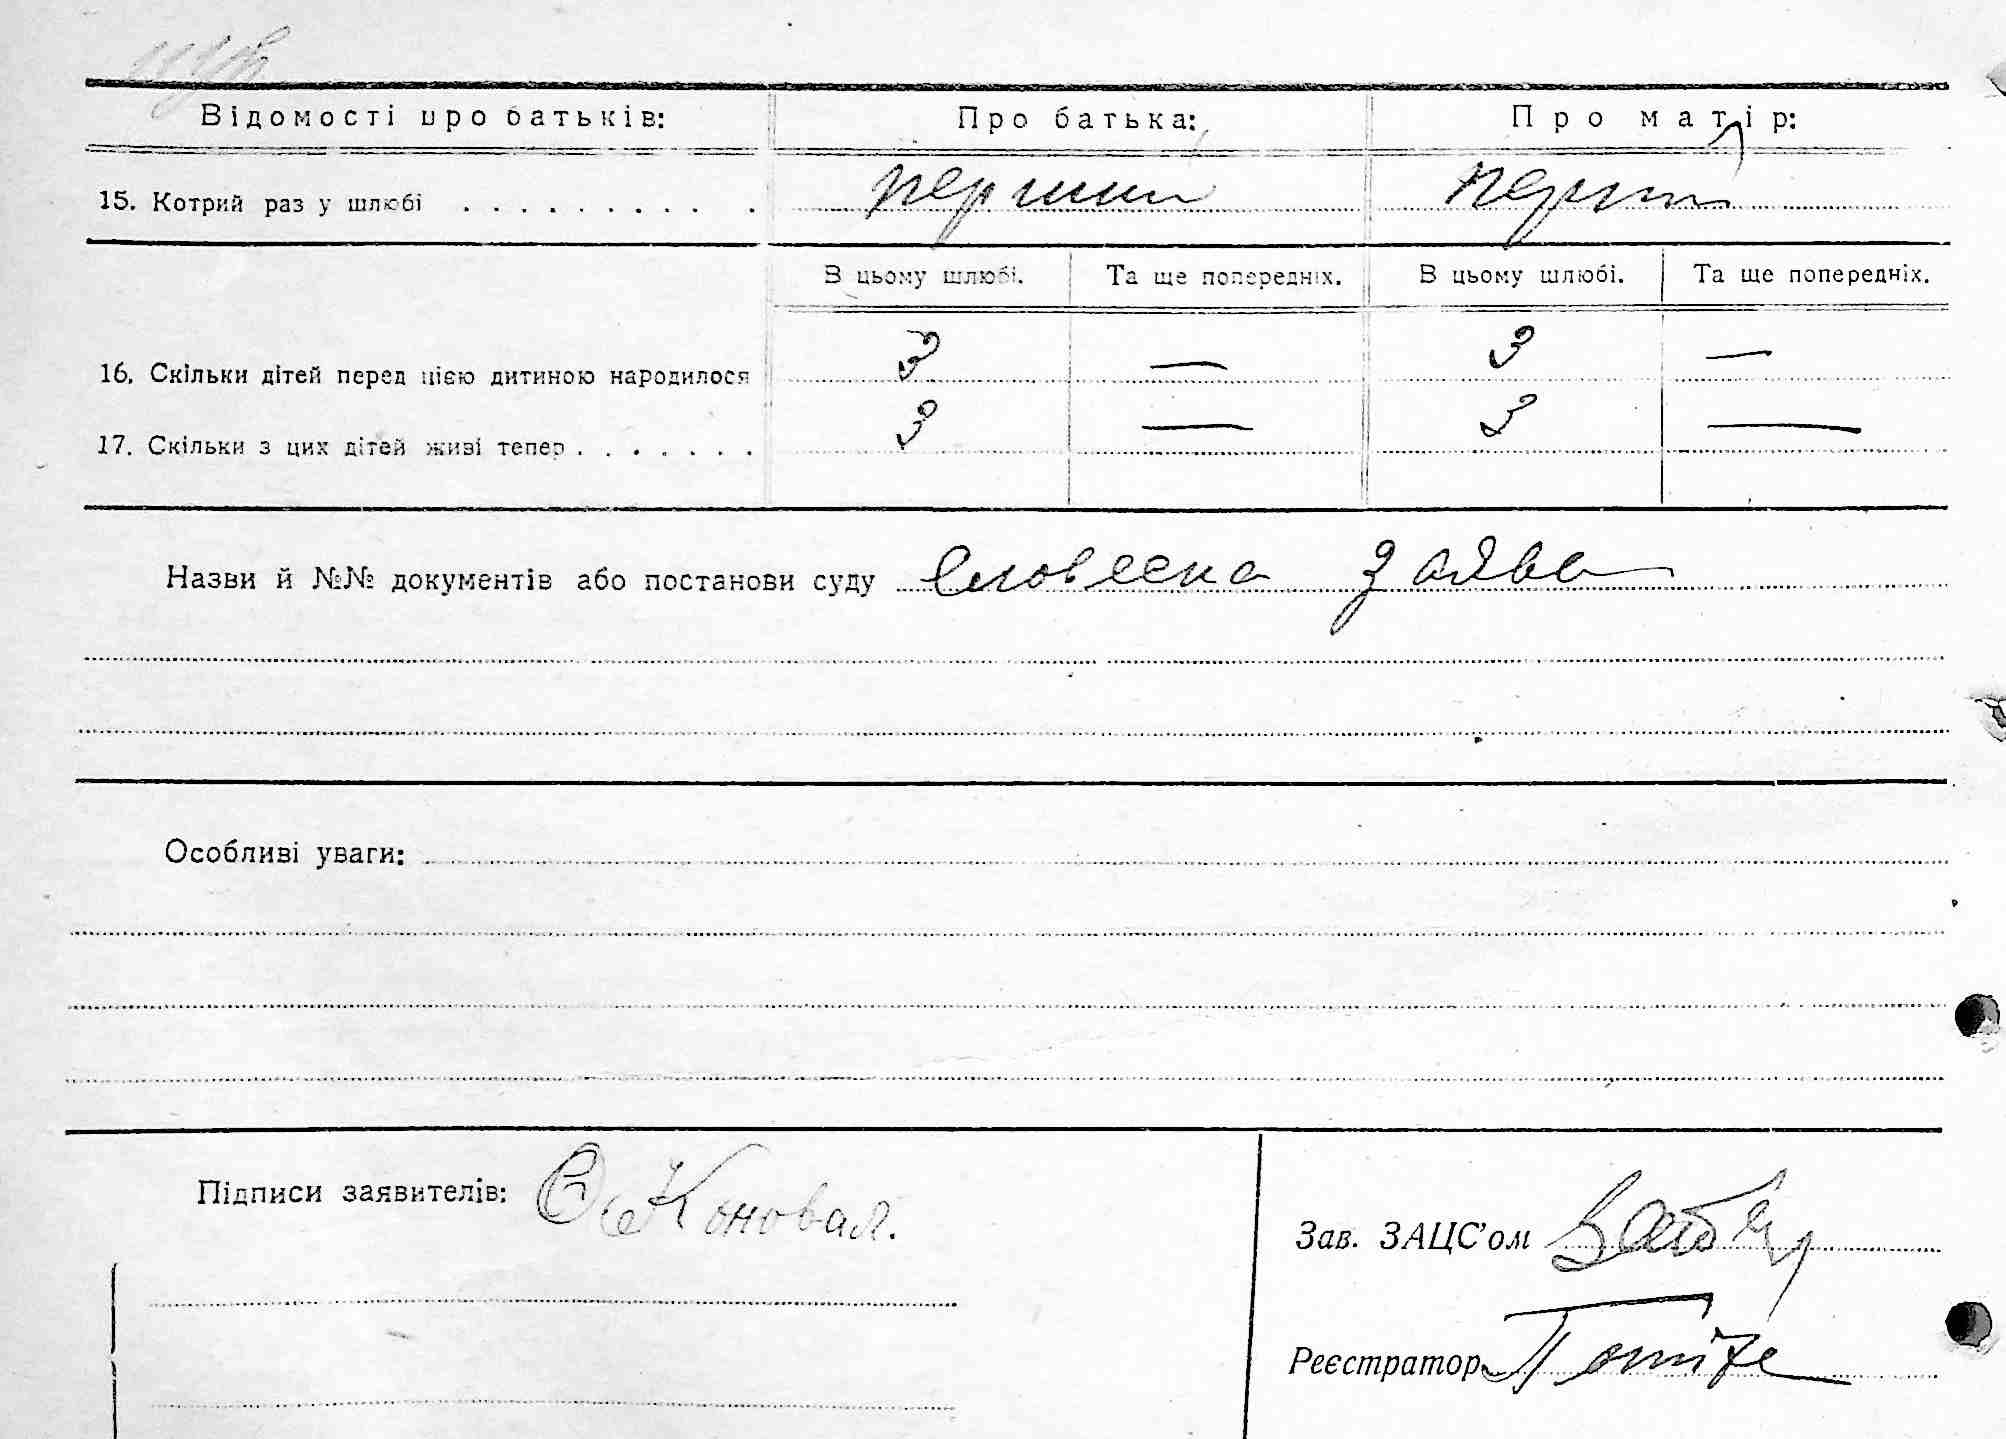 Відомості про батьків: Про батька: Про матір:
15. Котрий раз у шлюбі . . . . . . . . . . перший перший
В цьому шлюбі. Та ще попередніх. В цьому шлюбі. Та ще попередніх.
16. Скільки дітей перед цією дитиною народилося 3 — 3 —
17. Скільки з цих дітей живі тепер . . . . . . . 3 — 3 —
Назви й №№ документів або постанови суду словесна заява
Особливі уваги:
Підписи заявителів: Коновал.
Зав. ЗАЦС'ом
Реєстратор